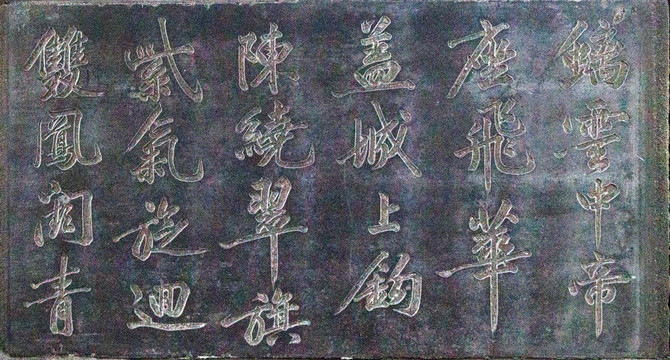 螭雲中帝
座飛華
蓋城上鉤
陳繞翠旗
紫氣旋迴
雙鳳闕青